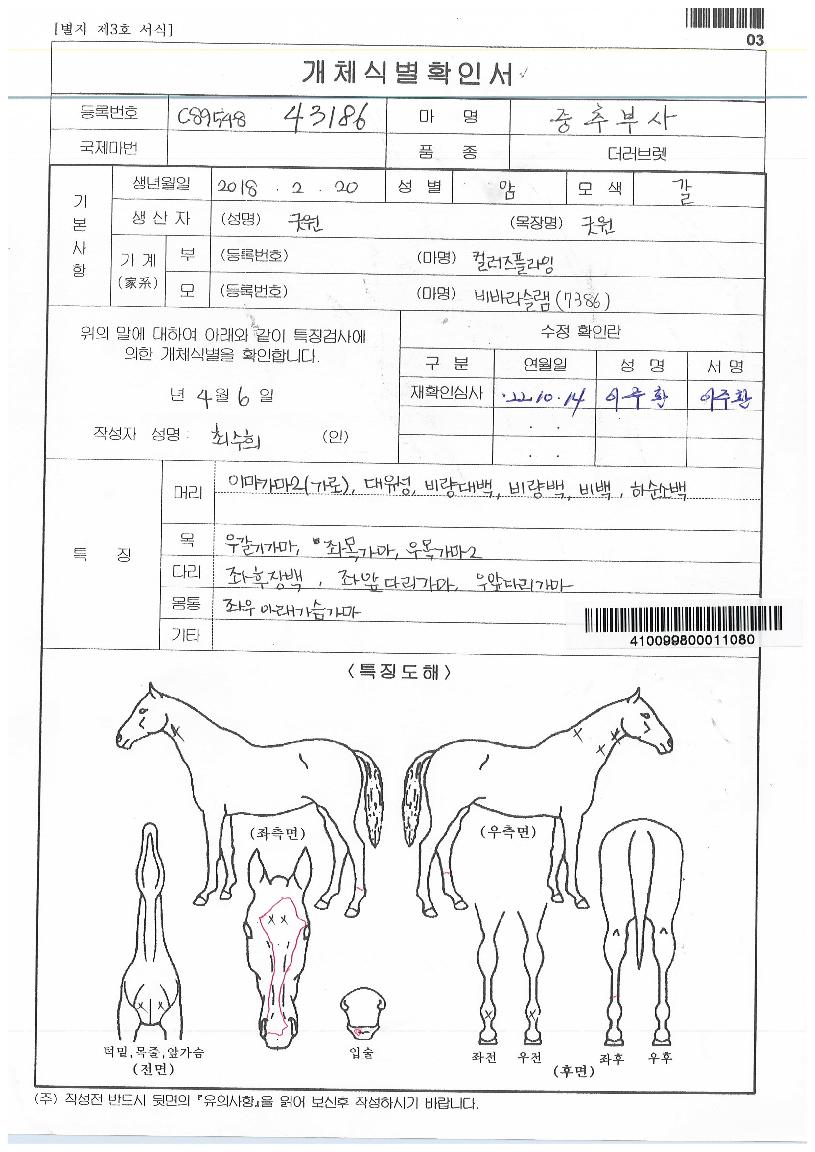 [별지 제3호 서식]
03
개체식별확인서
등록번호 C89548 43186 마 명 중추부사
국제마번 품 종 더러브렛
기본사항
생년월일 2018 . 2 . 20 성 별 암 모 색 갈
생 산 자 (성명) 굿원 (목장명) 굿원
기 계 (家系) 부 (등록번호) (마명) 컬러즈플라잉
모 (등록번호) (마명) 비바라슬램(7386)
위의 말에 대하여 아래와 같이 특징검사에
의한 개체식별을 확인합니다.
년 4월 6일
작성자 성명 : 최수희 (인)
수정 확인란
구 분 연월일 성 명 서 명
재확인심사 '22.10.14 이주환 이주환
. .
. .
특 징
머리 이마가마2(가로), 대유성, 비량대백, 비량백, 비백, 하순소백
목 우갈기가마, 좌목가마, 우목가마2
다리 좌후장백, 좌앞다리가마, 우앞다리가마
몸통 좌우아래가슴가마
기타
410099800011080
<특징도해>
(좌측면) (우측면)
턱밑,목줄,앞가슴
(전면)
입술
좌전 우전 좌후 우후
(후면)
(주) 작성전 반드시 뒷면의 『유의사항』을 읽어 보신후 작성하시기 바랍니다.